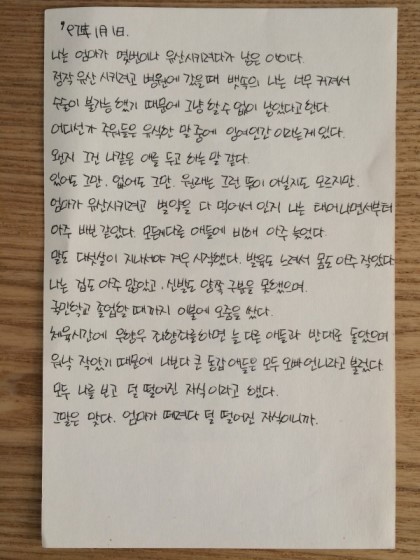 '97年 1月 1日.
나는 엄마가 몇번이나 유산시키려다가 낳은 아이다.
정작 유산 시키려고 병원에 갔을때 뱃속의 나는 너무 커져서
수술이 불가능 했기 때문에 그냥 할 수 없이 낳았다고 한다.
어디선가 주워들은 유식한 말 중에 잉여인간 이라는게 있다.
왠지 그건 나같은 애를 두고 하는 말 같다.
있어도 그만, 없어도 그만. 원래는 그런 뜻이 아닐지도 모르지만.
엄마가 유산시키려고 별약을 다 먹어서 인지 나는 태어나면서부터
아주 바보 같았다. 모든게 다른 애들에 비해 아주 늦었다.
말도 다섯살이 지나서야 겨우 시작했다. 발육도 느려서 몸도 아주 작았다.
나는 겁도 아주 많았고, 신발도 양짝 구분을 못했으며,
국민학교 졸업할 때까지 이불에 오줌을 쌌다.
체육시간에 우향우 좌향좌를 하면 늘 다른 애들과 반대로 돌았으며
워낙 작았기 때문에 나보다 큰 동갑 애들은 모두 오빠 언니라고 불렀다.
모두 나를 보고 덜 떨어진 자식 이라고 했다.
그말은 맞다. 엄마가 떼려다 덜 떨어진 자식이니까.